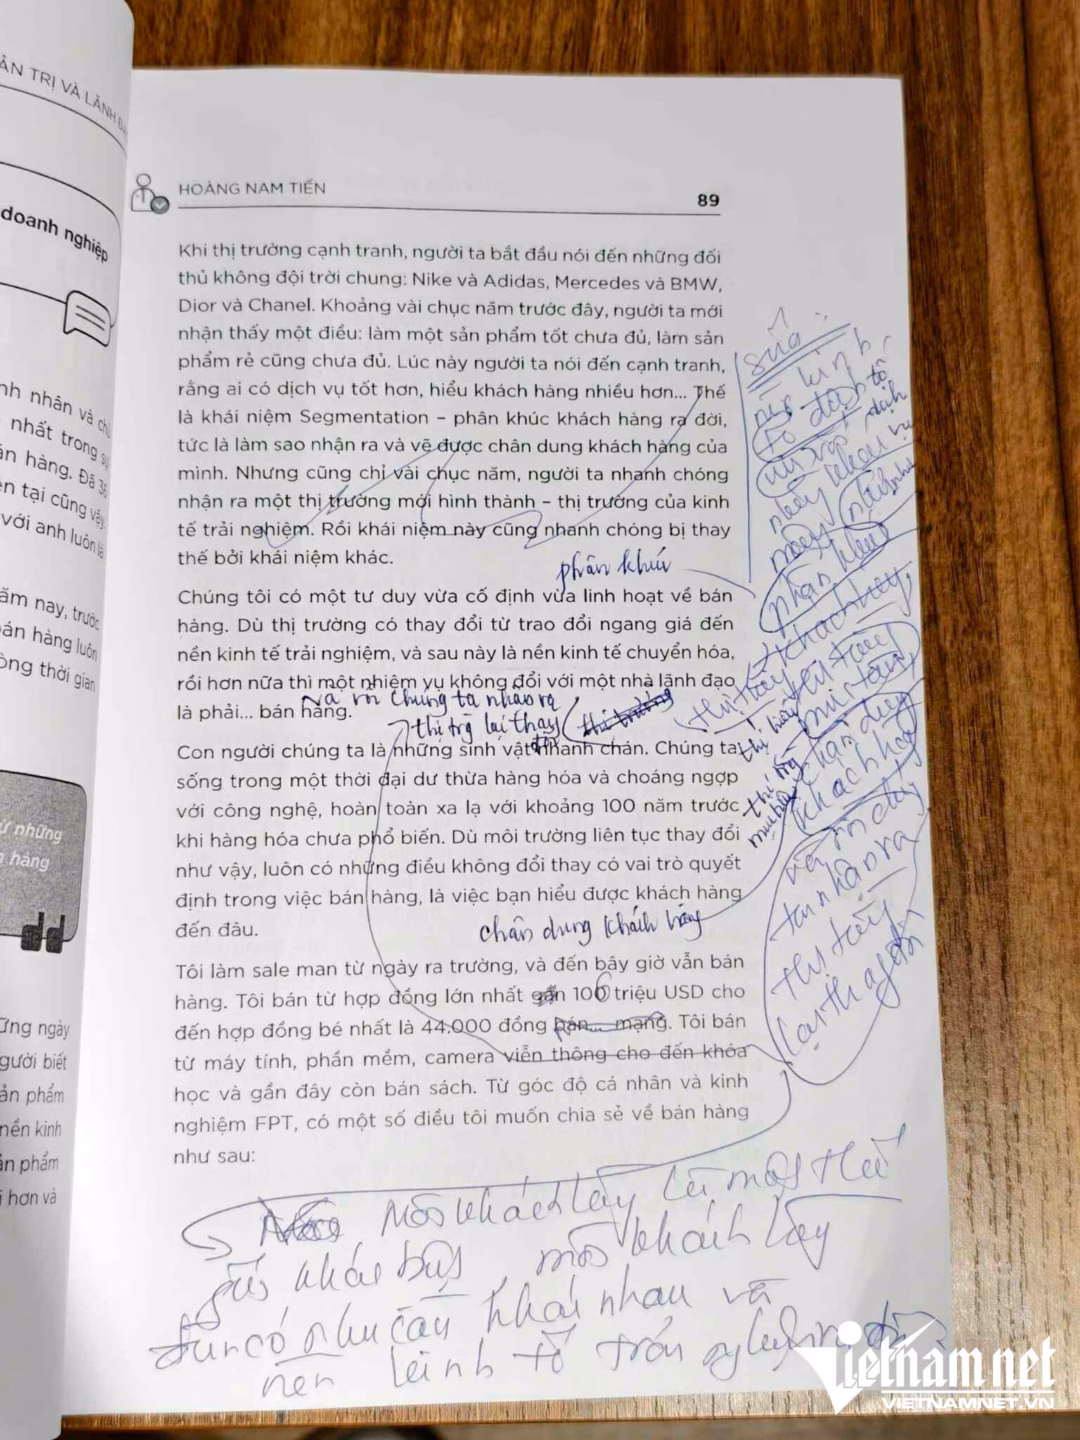 ẢN TRỊ VÀ LÃNH ĐẠ
doanh nghiệp
nh nhân và ch
nhất trong sự
án hàng. Đã 36
ện tại cũng vậy
với anh luôn là
ăm nay, trước
bán hàng luôn
òng thời gian
ừ những
n hàng
ững ngày
gười biết
ản phẩm
nền kinh
ản phẩm
i hơn và
HOÀNG NAM TIẾN
89
Khi thị trường cạnh tranh, người ta bắt đầu nói đến những đối
thủ không đội trời chung: Nike và Adidas, Mercedes và BMW,
Dior và Chanel. Khoảng vài chục năm trước đây, người ta mới
nhận thấy một điều: làm một sản phẩm tốt chưa đủ, làm sản
phẩm rẻ cũng chưa đủ. Lúc này người ta nói đến cạnh tranh,
rằng ai có dịch vụ tốt hơn, hiểu khách hàng nhiều hơn... Thế
là khái niệm Segmentation – phân khúc khách hàng ra đời,
tức là làm sao nhận ra và vẽ được chân dung khách hàng của
mình. Nhưng cũng chỉ vài chục năm, người ta nhanh chóng
nhận ra một thị trường mới hình thành – thị trường của kinh
tế trải nghiệm. Rồi khái niệm này cũng nhanh chóng bị thay
thế bởi khái niệm khác.
phân khúc
Chúng tôi có một tư duy vừa cố định vừa linh hoạt về bán
hàng. Dù thị trường có thay đổi từ trao đổi ngang giá đến
nền kinh tế trải nghiệm, và sau này là nền kinh tế chuyển hóa,
rồi hơn nữa thì một nhiệm vụ không đổi với một nhà lãnh đạo
là phải... bán hàng.
và rồi chúng ta nhận ra
thị trg lại thay
đổi
thị trường
Con người chúng ta là những sinh vật nhanh chán. Chúng ta
sống trong một thời đại dư thừa hàng hóa và choáng ngợp
với công nghệ, hoàn toàn xa lạ với khoảng 100 năm trước
khi hàng hóa chưa phổ biến. Dù môi trường liên tục thay đổi
như vậy, luôn có những điều không đổi thay có vai trò quyết
định trong việc bán hàng, là việc bạn hiểu được khách hàng
đến đâu.
chân dung khách hàng
Tôi làm sale man từ ngày ra trường, và đến bây giờ vẫn bán
hàng. Tôi bán từ hợp đồng lớn nhất gần 100 triệu USD cho
đến hợp đồng bé nhất là 44.000 đồng bán... mạng. Tôi bán
từ máy tính, phần mềm, camera viễn thông cho đến khóa
học và gần đây còn bán sách. Từ góc độ cá nhân và kinh
nghiệm FPT, có một số điều tôi muốn chia sẻ về bán hàng
như sau:
sửa:
phân khúc
chân dung
khách hàng
và rồi chúng
ta nhận ra
thị trường
lại thay đổi
Mỗi khách hàng là một thế
giới khác biệt, mỗi khách hàng
đều có nhu cầu khác nhau và
nên kinh tế trải nghiệm ra đời
Vietnamnet
VIETNAMNET.VN